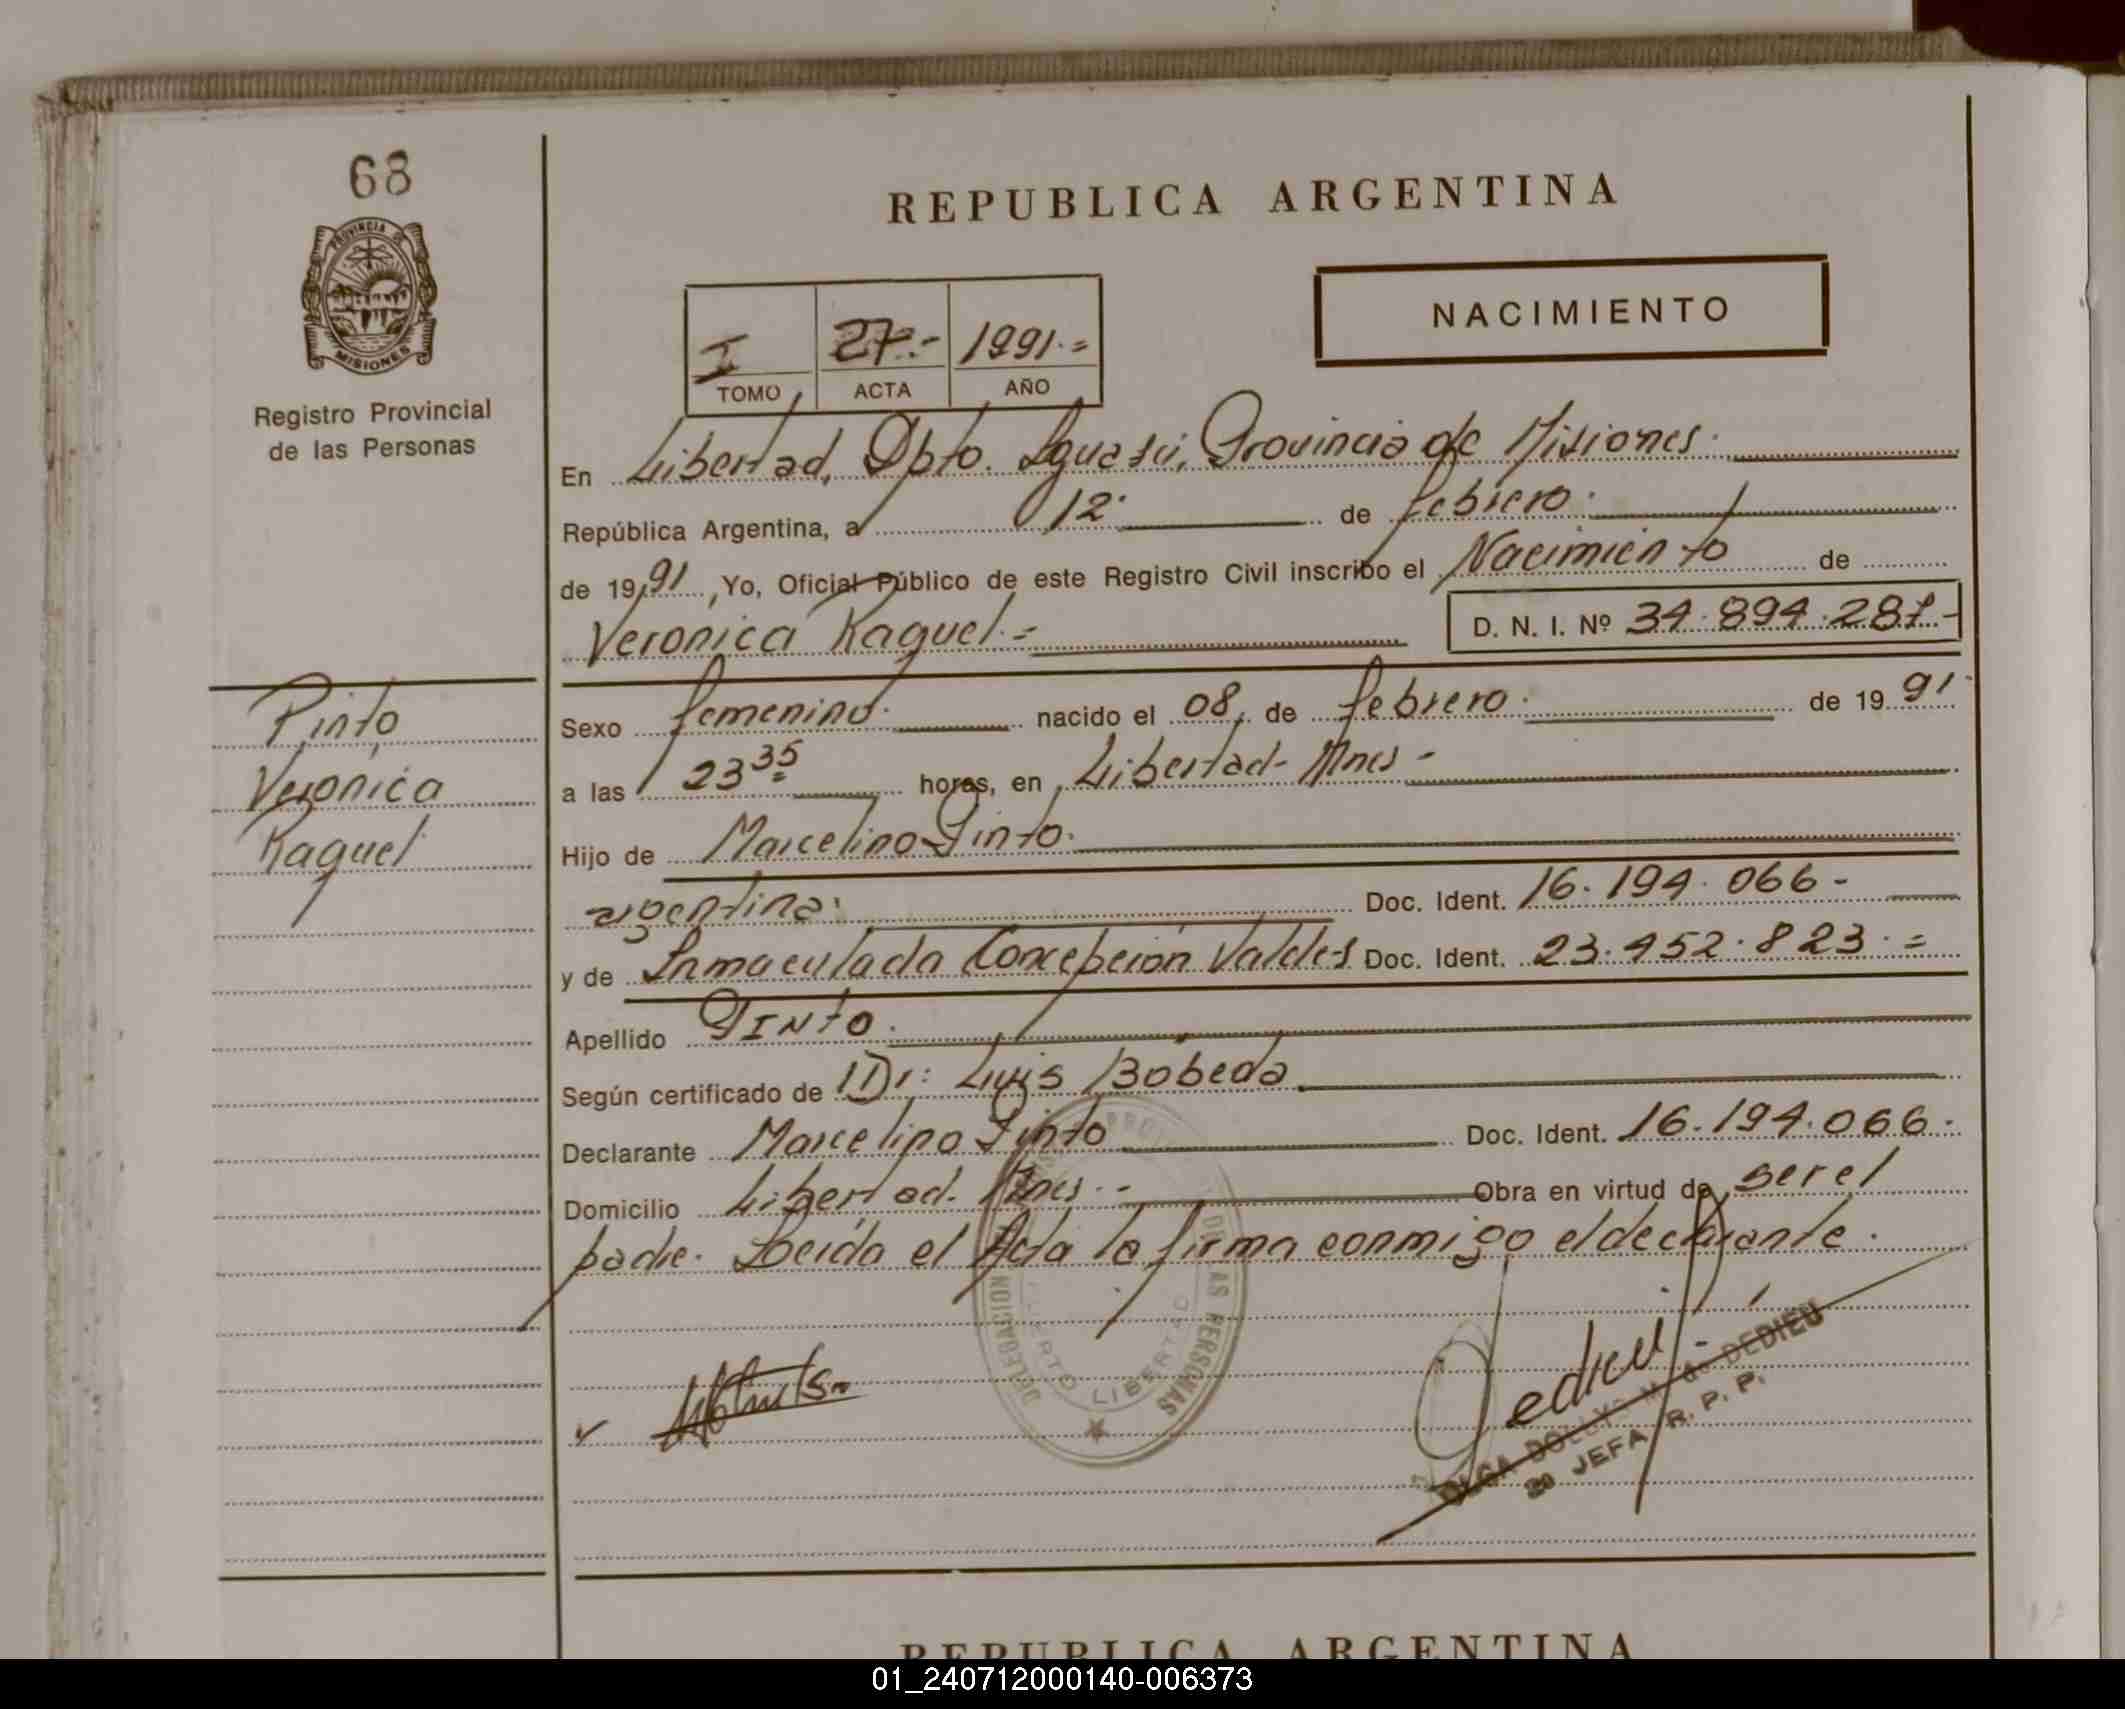 68
PROVINCIA DE
MISIONES
Registro Provincial
de las Personas
REPUBLICA ARGENTINA
NACIMIENTO
I 27.- 1991.=
TOMO ACTA AÑO
En Libertad, Dpto. Iguasú, Provincia de Misiones.
República Argentina, a 12 de febrero.
de 1991, Yo, Oficial Público de este Registro Civil inscribo el Nacimiento de
Veronica Raquel.= D. N. I. Nº 34.894.287-
Pinto
Veronica
Raquel
Sexo femenino. nacido el 08, de febrero. de 1991
a las 23 35 horas, en Libertad- Mnes-
Hijo de Marcelino Pinto.
argentina. Doc. Ident. 16.194.066-
y de Inmaculada Concepción Valdes Doc. Ident. 23.452.823.=
Apellido PINTO.
Según certificado de Dr: Luis Bóbeda
Declarante Marcelino Pinto Doc. Ident. 16.194.066.
Domicilio Libertad. Mnes.- Obra en virtud de ser el
padre. Leída el Acta la firma conmigo el declarante.
DELEGACION
DE LAS PERSONAS
PUERTO LIBERTAD
Dedieu
OLGA M. de DEDIEU
JEFA R. P. P.
REPUBLICA ARGENTINA
01_240712000140-006373